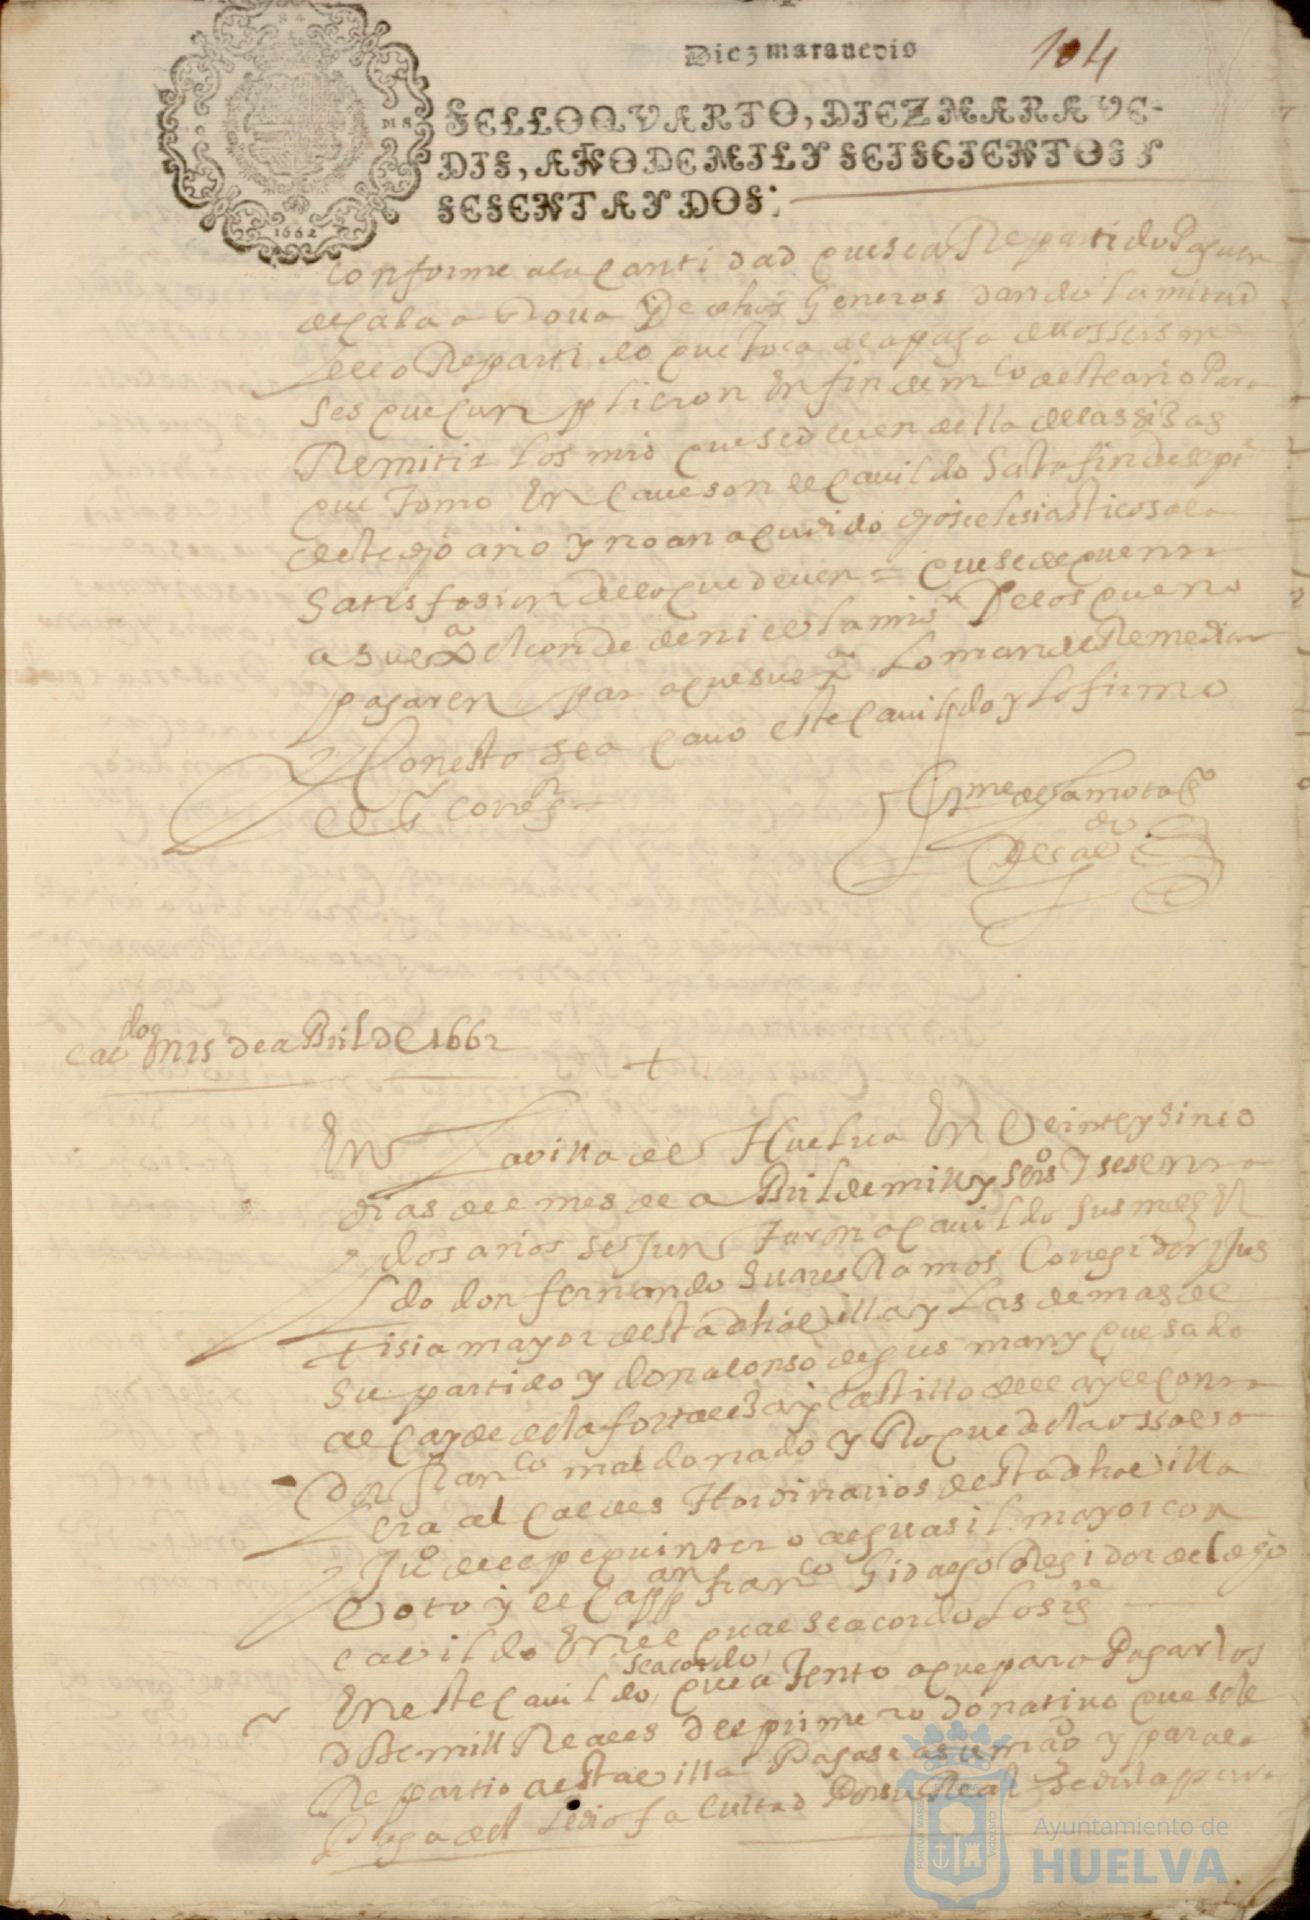 Diez maravedis
104
SELLO QVARTO, DIEZ MARAVE-
DIS, AÑO DE MIL Y SEISCIENTOS Y
SESENTA Y DOS.
1662
conforme a la cantidad que sea Repartido Pagar
de cada a Roua De dhos Generos dando la mitad
de lo Repartido que toca a la paga de los seis me
ses que cunplieron en fin de mco deste año Para
Remitir Los mrs que se deuen de lla de las sisas
que tomo En caueson el cauildo hasta fin de
deste dho año y no an acudido ejos clesiasticos a la
Satisfasion de lo que deuen = que se de quenta
a su exa el conde de niebla mi sr De los que no
pagaren par a que su exa Lo mande Remediar
y Con esto se a cauo este cauildo y lo firmo
el Sr corregr
de la mota
caudo En 25 de aBril de 1662
En La villa de Huelua En Veinte y sinco
dias del mes de aBril de mill y seisos y sesenta
y dos años se Juntaron a cauildo sus mdes El
Ldo don fernando suares Ramos Corregidor y Jus
tisia mayor desta dha villa y Las demas de
su partido y don alonso de gusman y quesada
alcayde de la fortalesa y castillo de ella y el conta
dor franco maldonado y Roque de la ossa
era alcaldes Hordinarios desta dha villa
y Juo de el pequintero alguasil mayor con
Voto y el cappan franco hidalgo Regidor del dho
cauildo En el qual se acordo Lo sige
En este cauildo se acordo que atento a que para Pagar los
dose mill Reales del primero donatiuo que se le
Repartio a esta villa Pagase a su magd y para la
Paga del Ledio facultad Por su Real Sedula para
Ayuntamiento de
HUELVA